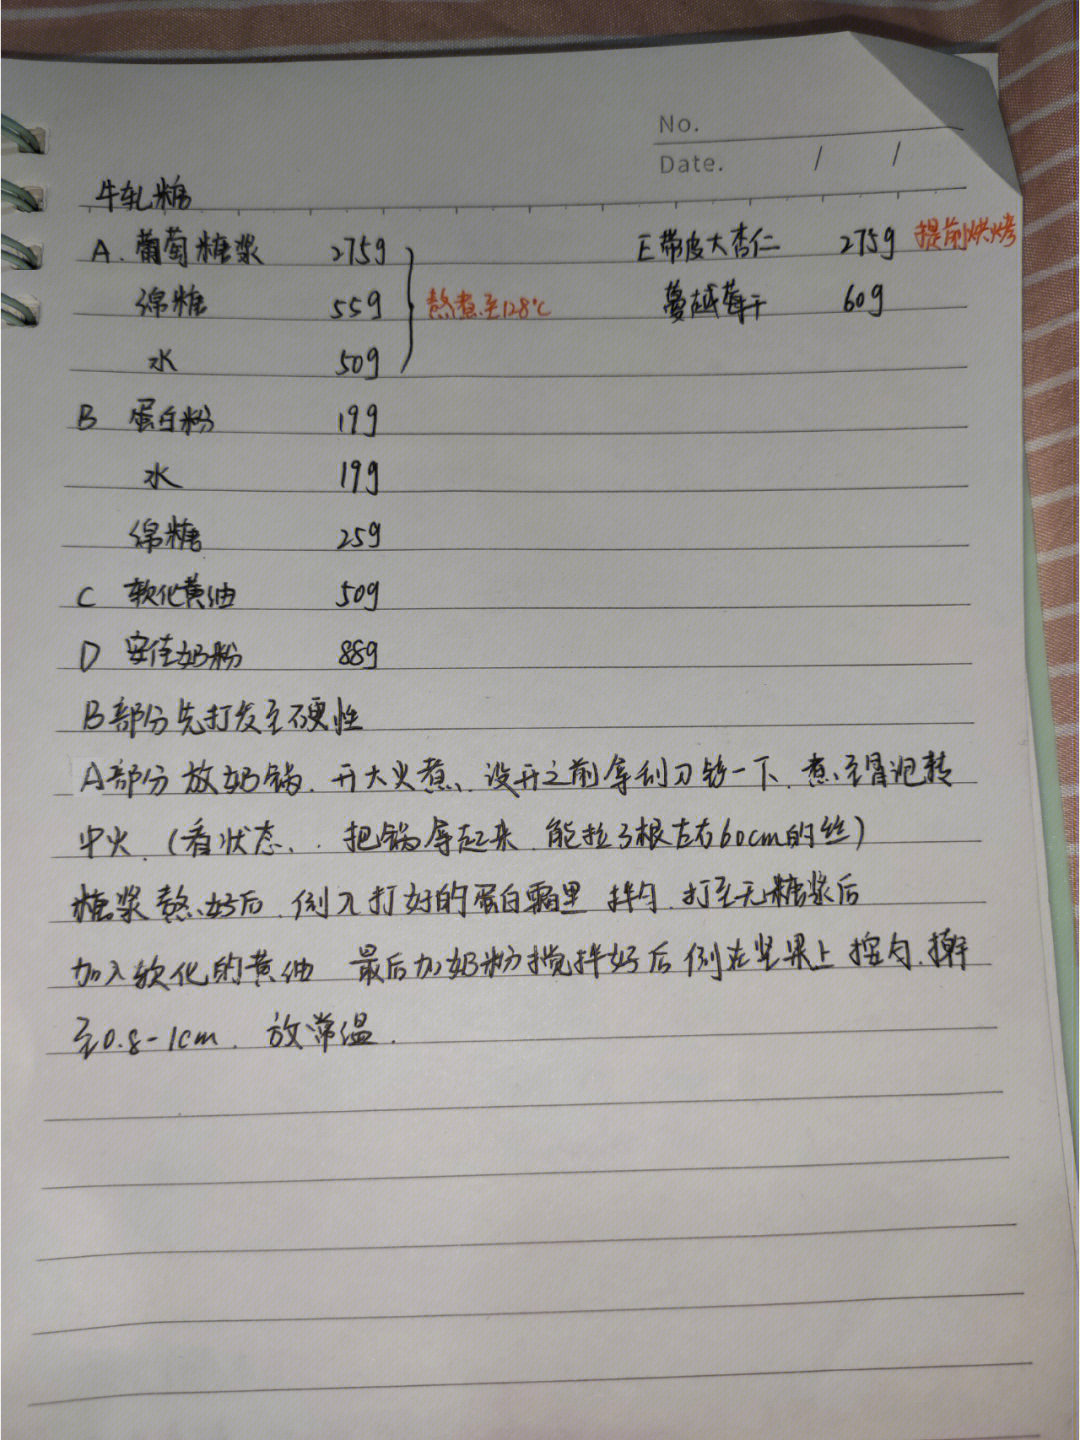 No.
Date. / /
牛轧糖
A. 葡萄糖浆 275g E 带皮大杏仁 275g 提前烘烤
绵糖 55g 熬煮至128℃ 蔓越莓干 60g
水 50g
B 蛋白粉 19g
水 19g
绵糖 25g
C 软化黄油 50g
D 安佳奶粉 88g
B部分先打发至硬性
A部分放奶锅. 开大火煮、没开之前拿刮刀铲一下、煮至冒泡转
中火. (看状态、. 把锅拿起来. 能拉3根左右60cm的丝)
糖浆熬好后. 倒入打好的蛋白霜里 拌匀. 打至无糖浆后
加入软化的黄油 最后加奶粉搅拌好后倒在坚果上 匀. 擀
至0.8-1cm. 放常温.